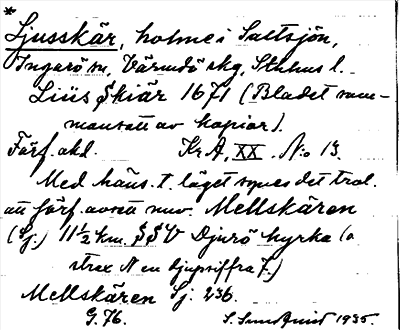 *
Ljusskär, holme i Saltsjön,
Ingarö sn, Värmdö skg, Sthlms l.
Liüs Skiär 1671 (Bladet sam-
mansatt av kopior).
Förf. okd. Kr.A, XX. No 13.
Med häns. t. läget synes det trol.
att förf. avsett nuv. Mellskären
(Sj.) 11½ km. SSV Djurö kyrka (o
strax N en djupsiffra 7.)
Mellskären Sj. 236.
G. 76. S. Sundquist 1935.